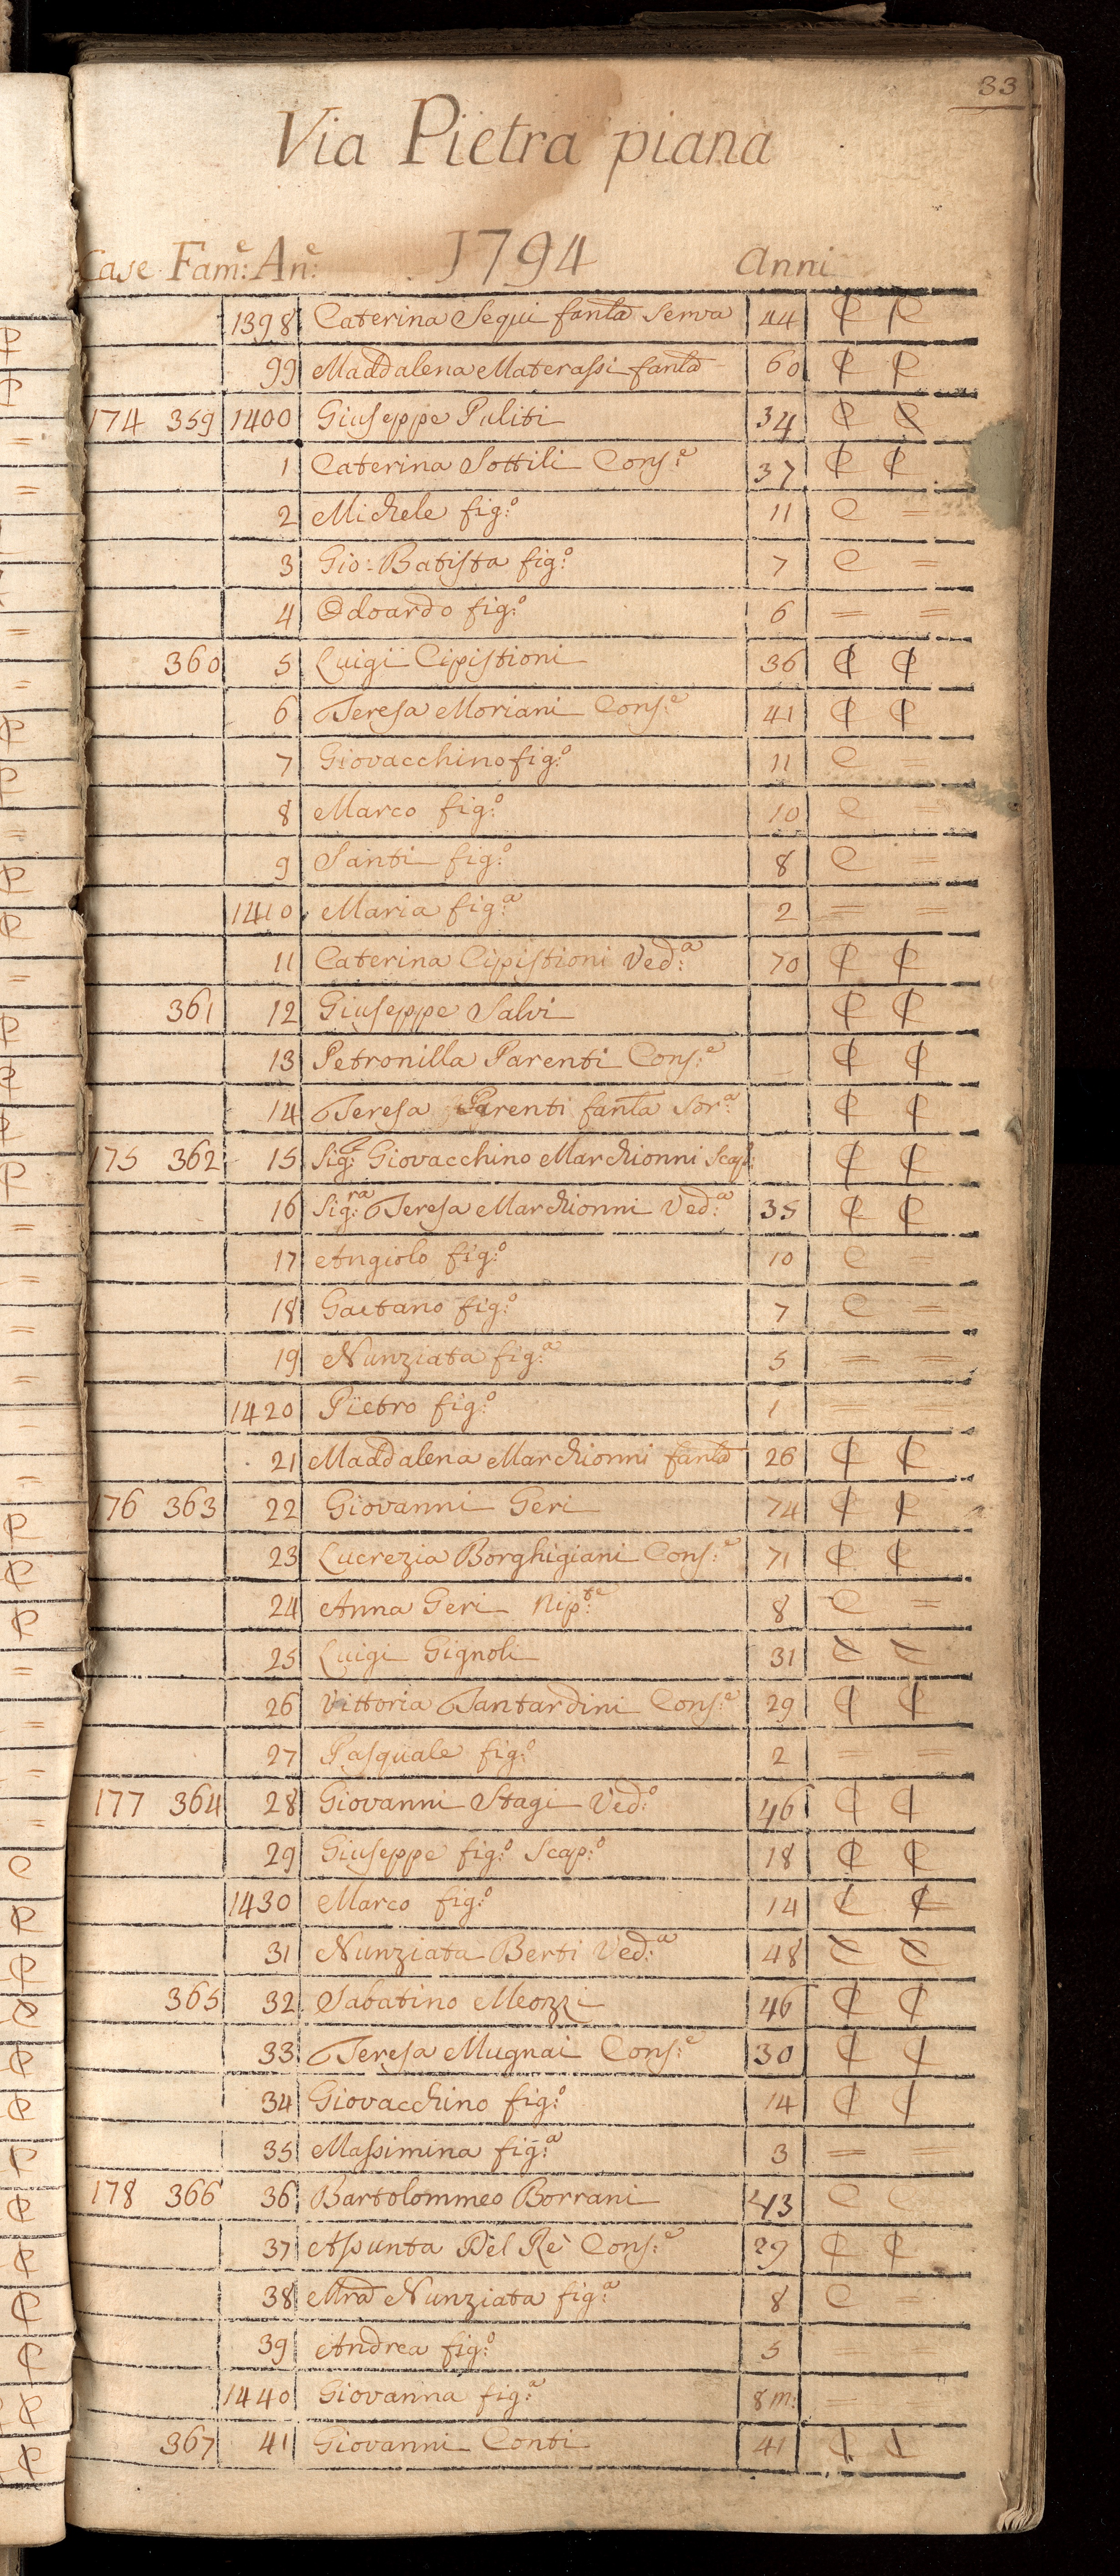 33
Via Pietra piana
Case Fam:e An:e 1794 Anni
1398 Caterina Sequi fanla Serva 44 C C
99 Maddalena Materassi fanla 60 C C
174 359 1400 Giuseppe Puliti 34 C C
1 Caterina Sottili Cons:e 37 C C
2 Michele fig:o 11 C =
3 Gio: Batista fig:o 7 C =
4 Odoardo fig:o 6 = =
360 5 Luigi Cipistioni 36 C C
6 Teresa Moriani Cons:e 41 C C
7 Giovacchino fig:o 11 C =
8 Marco fig:o 10 C =
9 Santi fig:o 8 C =
1410 Maria fig:a 2 = =
11 Caterina Cipistioni Ved:a 70 C C
361 12 Giuseppe Salvi C C
13 Petronilla Parenti Cons:e C C
14 Teresa Parenti fanla Sor:a C C
175 362 15 Sig:r Giovacchino Marchionni Scap: C C
16 Sig:ra Teresa Marchionni Ved:a 35 C C
17 Angiolo fig:o 10 C =
18 Gaetano fig:o 7 C =
19 Nunziata fig:a 5 = =
1420 Pietro fig:o 1 = =
21 Maddalena Marchionni fanla 26 C C
176 363 22 Giovanni Geri 74 C C
23 Lucrezia Borghigiani Cons:e 71 C C
24 Anna Geri Nip:te 8 C =
25 Luigi Gignoli 31 C C
26 Vittoria Tantardini Cons:e 29 C C
27 Pasquale fig:o 2 = =
177 364 28 Giovanni Stagi Ved:o 46 C C
29 Giuseppe fig:o Scap:o 18 C C
1430 Marco fig:o 14 C C
31 Nunziata Berti Ved:a 48 C C
365 32 Sabatino Meozzi 46 C C
33 Teresa Mugnai Cons:e 30 C C
34 Giovacchino fig:o 14 C C
35 Massimina fig:a 3 =
178 366 36 Bartolommeo Borrani 43 C C
37 Assunta Del Rè Cons:e 29 C C
38 Mra Nunziata fig:a 8 C =
39 Andrea fig:o 5 = =
1440 Giovanna fig:a 8 m: =
367 41 Giovanni Conti 41 C C